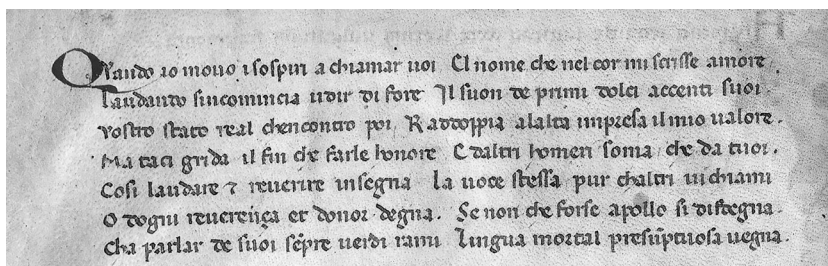 Quando io mouo i sospiri a chiamar uoi El nome che nel cor mi scrisse amore.
Laudando sincomincia udir di fore Il suon de primi dolci accenti suoi.
Vostro stato real chencontro poi, Raddoppia alalta impresa il mio ualore.
Ma taci grida il fin che farle honore E daltri homeri soma che da tuoi.
Cosi laudare ⁊ reuerire insegna La uoce stessa pur chaltri ui chiami
O dogni reuerença et donor degna. Se non che forse apollo si disdegna.
Cha parlar de suoi sẽpre uerdi rami Lingua mortal presũptuosa uegna.